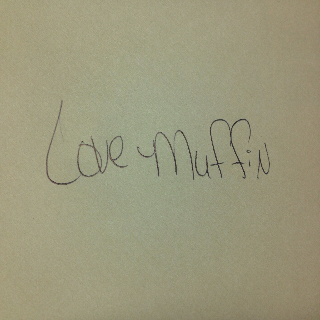 Love Muffin